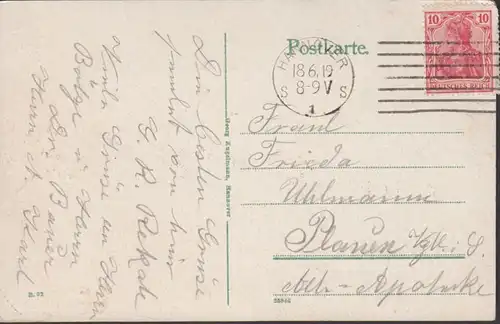 Postkarte.
HANNOVER
18.6.19
8-9 V
S S
1
10
DEUTSCHES REICH
Fraul.
Frieda
Uhlmann
Plauen Vgtl. i. S.
Alte-Apotheke
Die besten Grüße
sendet von hier
Viele Grüße an Herrn
u Herrn
Dr. Bauer
Herrn Karl
Georg Kugelmann, Hannover